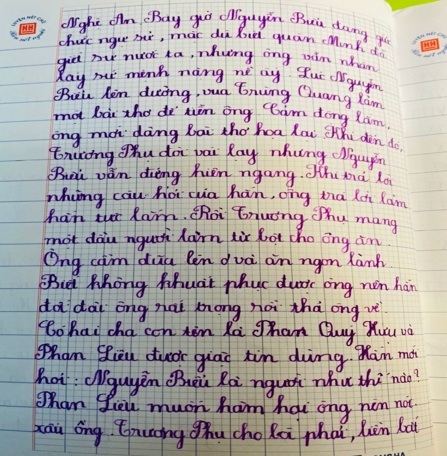 Nghê An. Bây giờ Nguyễn Biểu đang giữ
chức ngự sử, mặc dù biết quân Minh đã
giết sứ nước ta, nhưng ông vẫn nhận
lấy sứ mệnh nặng nề ấy. Lúc Nguyễn
Biểu lên đường, vua Trùng Quang làm
một bài thơ để tiễn ông. Cảm động lắm,
ông mới dâng bài thơ hoạ lại. Khi đến đó,
Trương Phụ đòi vái lạy nhưng Nguyễn
Biểu vẫn đứng hiên ngang. Khi trả lời
những câu hỏi của hắn, ông trả lời làm
hắn tức lắm. Rồi Trương Phụ mang
một đầu người làm từ bột cho ông ăn.
Ông cầm đũa lên ở và ăn ngon lành.
Biết không khuất phục được ông nên hắn
đã đãi ông rất trọng rồi thả ông về.
Có hai cha con tên là Phan Quý Hựu và
Phan Liêu được giặc tin dùng. Hắn mới
hỏi: Nguyễn Biểu là người như thế nào?
Phan Liêu muốn hãm hại ông nên nói
xấu ông. Trương Phụ cho là phải, liền bắt